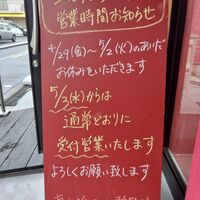 営業時間お知らせ
4/29(金)〜5/2(火)のあいだ
お休みをいただきます
5/3(水)からは
通常どおりに
受付営業いたします
よろしくお願い致します